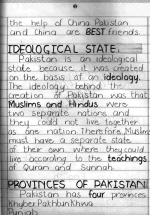 the help of China Pakistan
and China are BEST friends.
IDEOLOGICAL STATE:
Pakistan is an ideological
state because it was created
on the basis of an ideology.
The ideology behind the
creation of Pakistan was that
Muslims and Hindus were
two separate nations and
they could not live together
as one nation. Therefore, Muslims
must have a separate state
of their own where they could
live according to the teachings
of Quran and Sunnah.
PROVINCES OF PAKISTAN
Pakistan has four provinces.
Khyber Pakhtun Khwa
Punjab